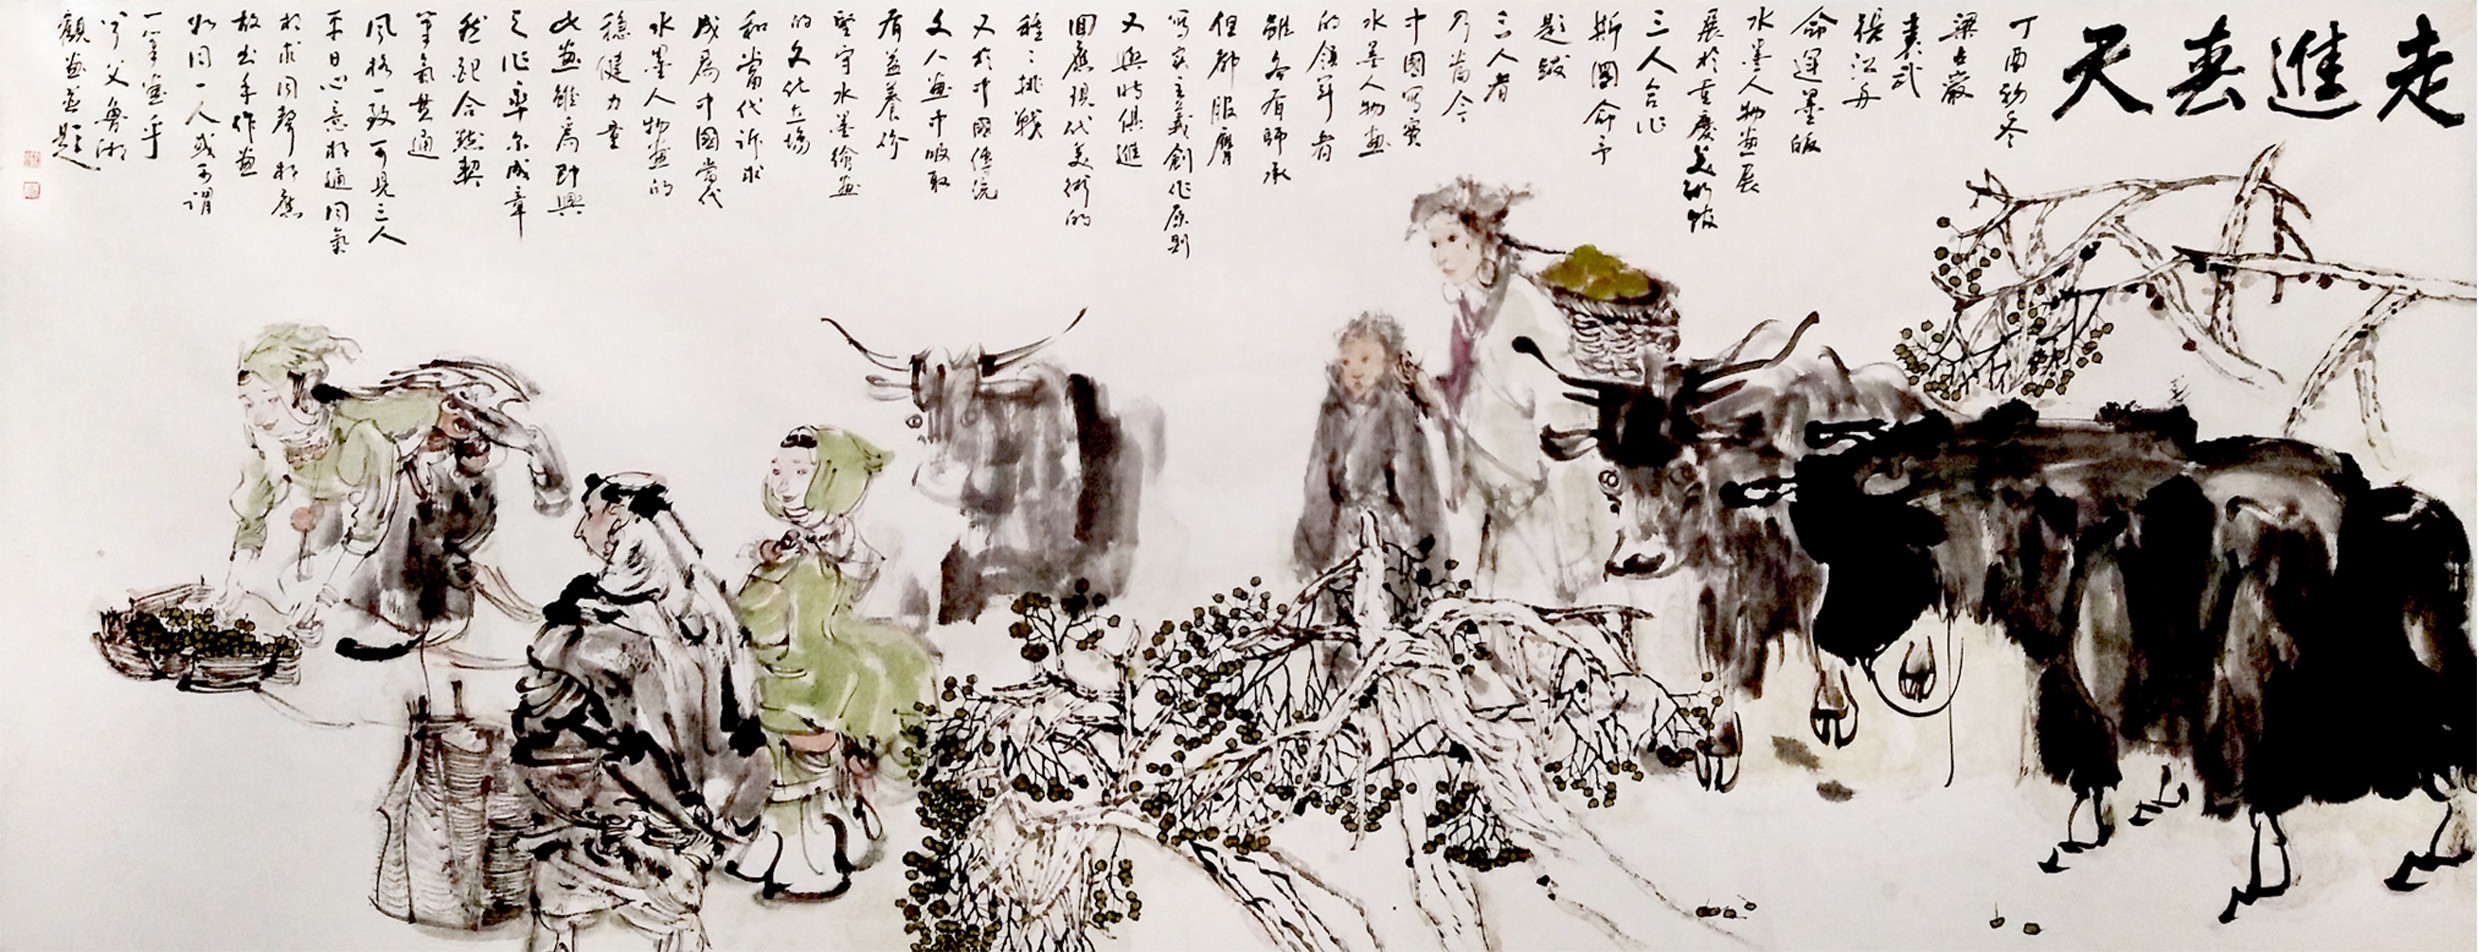 走進春天
丁酉初冬
梁占巖
袁武
張江舟
命運墨皈
水墨人物畫展
展於重慶美術館
三人合作
斯圖命予
題跋
三人者
乃當今
中國寫實
水墨人物畫
的領軍者
雖各有師承
但都服膺
寫實主義創作原則
又與時俱進
回應現代美術的
種種挑戰
又於中國傳統
文人畫中吸取
有益養份
堅守水墨繪畫
的文化立場
和當代訴求
成為中國當代
水墨人物畫的
穩健力量
此畫雖為即興
之作率尔成章
然配合默契
筆氣貫通
風格一致可見三人
平日心意相通同氣
相求同聲相應
故出手作畫
如同一人或可謂
一筆畫乎
兮父魯湘
觀畫並題